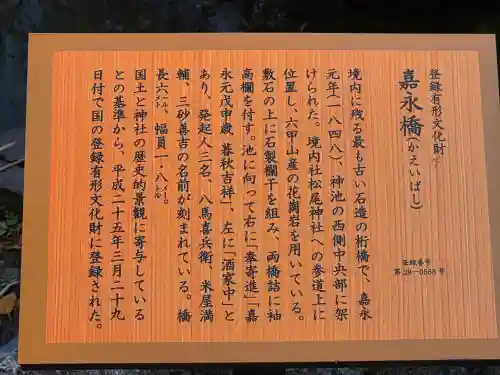 登録有形文化財
嘉永橋(かえいばし)
登録番号
第28-0568号
境内に残る最も古い石造の桁橋で、嘉永
元年(一八四八)、神池の西側中央部に架
けられた。境内社松尾神社への参道上に
位置し、六甲山産の花崗岩を用いている。
敷石の上に石製欄干を組み、両橋詰に袖
高欄を付す。池に向って右に「奉寄進」「嘉
永元戊申歳 暮秋吉祥」、左に「酒家中」と
あり、発起人三名、八馬喜兵衛、米屋満
輔、三砂善吉の名前が刻まれている。橋
長六メートル、幅員一・八メートル
国土と神社の歴史的景観に寄与している
との基準から、平成二十五年三月二十九
日付で国の登録有形文化財に登録された。